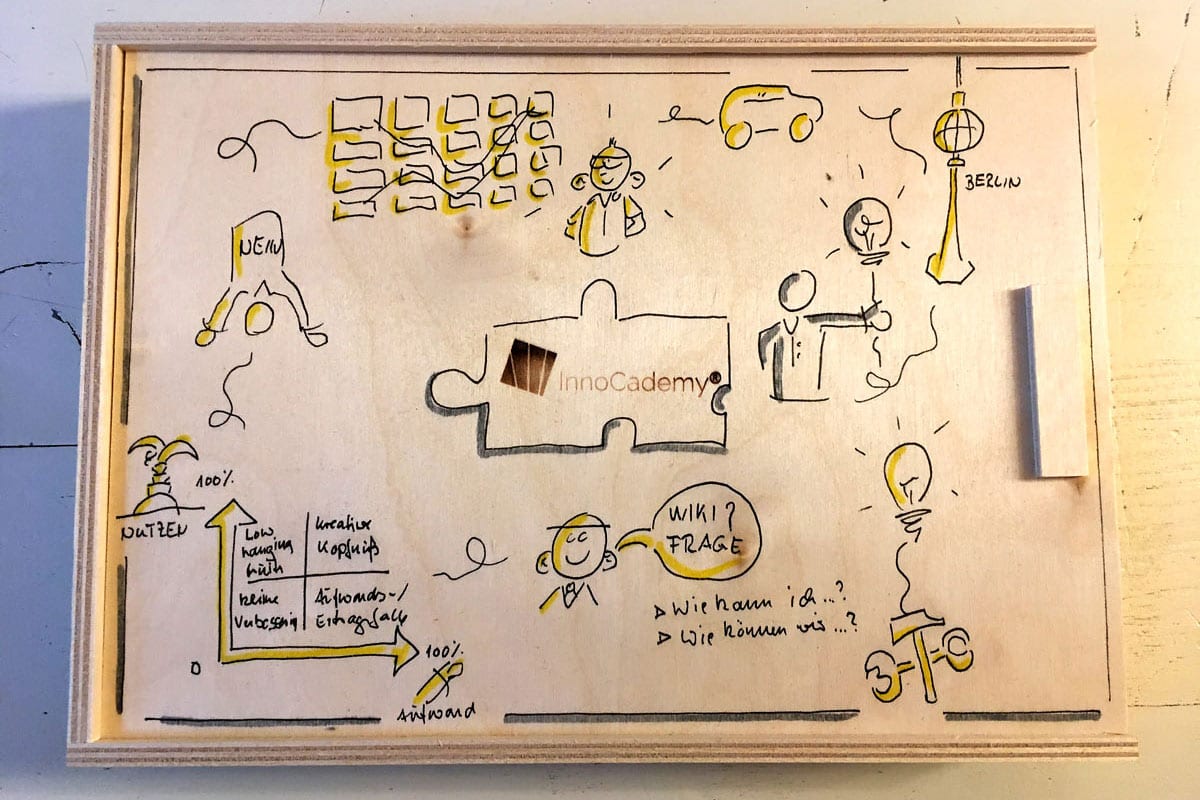 BERLIN
NEIN
InnoCademy®
100%
NUTZEN
Low
hanging
fruits
kreative
Kopfnüß
keine
Verbesserung
Aufwands-/
Ertragsfalle
0
100%
Aufwand
WIKI?
FRAGE
▷ Wie kann ich...?
▷ Wie können wir...?